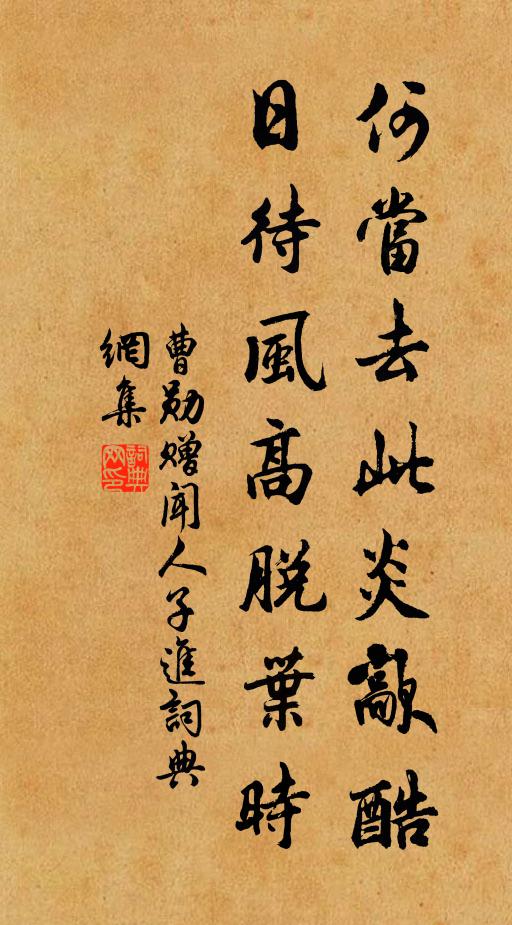 何當去此炎歊酷
日待風高脫葉時
曹勛贈聞人子進詞典
網集
詞典網印